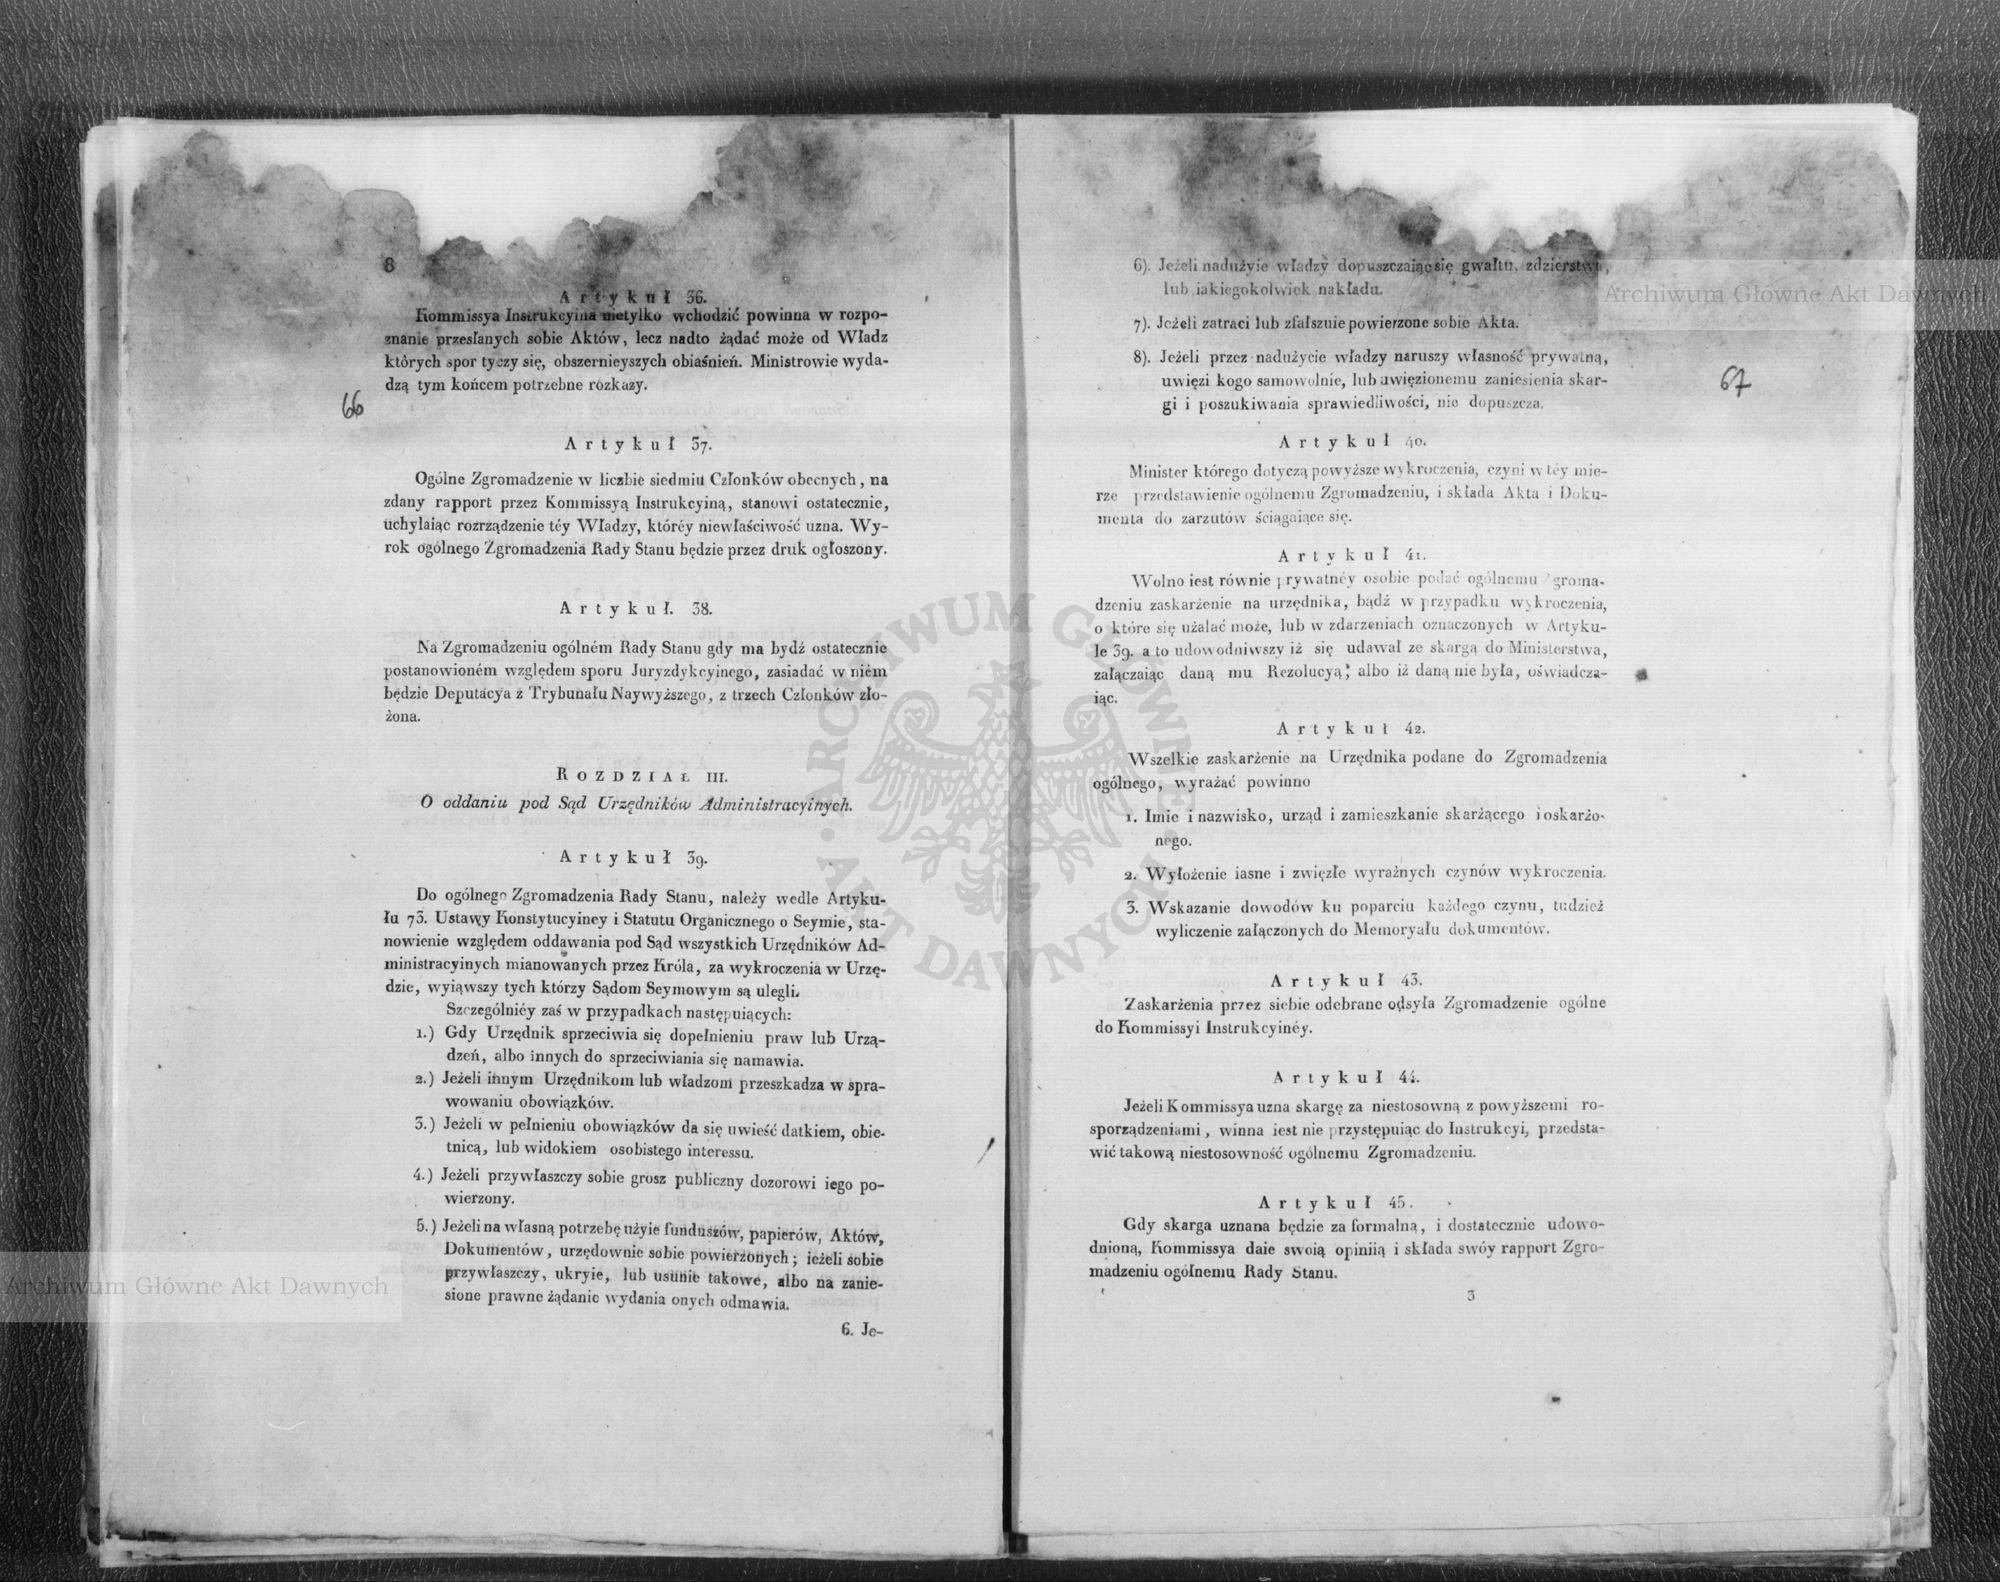 8
Artykuł 36.
Kommissya Instrukcyina nietylko wchodzić powinna w rozpo-
znanie przesłanych sobie Aktów, lecz nadto żądać może od Władz
których spor tyczy się, obszernieyszych obiaśnień. Ministrowie wyda-
dzą tym końcem potrzebne rozkazy.
66
Artykuł 37.
Ogólne Zgromadzenie w liczbie siedmiu Członków obecnych, na
zdany rapport przez Kommissyą Instrukcyiną, stanowi ostatecznie,
uchylaiąc rozrządzenie téy Władzy, któréy niewłaściwość uzna. Wy-
rok ogólnego Zgromadzenia Rady Stanu będzie przez druk ogłoszony.
Artykuł. 38.
Na Zgromadzeniu ogólném Rady Stanu gdy ma bydź ostatecznie
postanowioném względem sporu Juryzdykcyinego, zasiadać w niém
będzie Deputacya z Trybunału Naywyższego, z trzech Członków zło-
żona.
ROZDZIAŁ III.
O oddaniu pod Sąd Urzędników Administracyinych.
Artykuł 39.
Do ogólnego Zgromadzenia Rady Stanu, należy wedle Artyku-
łu 73. Ustawy Konstytucyiney i Statutu Organicznego o Seymie, sta-
nowienie względem oddawania pod Sąd wszystkich Urzędników Ad-
ministracyinych mianowanych przez Króla, za wykroczenia w Urzę-
dzie, wyiąwszy tych którzy Sądom Seymowym są ulegli.
Szczególniéy zaś w przypadkach następuiących:
1.) Gdy Urzędnik sprzeciwia się dopełnieniu praw lub Urzą-
dzeń, albo innych do sprzeciwiania się namawia.
2.) Jeżeli innym Urzędnikom lub władzom przeszkadza w spra-
wowaniu obowiązków.
3.) Jeżeli w pełnieniu obowiązków da się uwieść datkiem, obie-
tnicą, lub widokiem osobistego interessu.
4.) Jeżeli przywłaszczy sobie grosz publiczny dozorowi iego po-
wierzony.
5.) Jeżeli na własną potrzebę użyie funduszów, papierów, Aktów,
Dokumentów, urzędownie sobie powierzonych; ieżeli sobie
przywłaszczy, ukryie, lub usunie takowe, albo na zanie-
sione prawne żądanie wydania onych odmawia.
6. Je-
6). Jeżeli nadużyie władzy dopuszczaiąc się gwałtu, zdzierstwa,
lub iakiegokolwiek nakładu.
7). Jeżeli zatraci lub zfałszuie powierzone sobie Akta.
8). Jeżeli przez nadużycie władzy naruszy własność prywatną,
uwięzi kogo samowolnie, lub uwięzionemu zaniesienia skar-
gi i poszukiwania sprawiedliwości, nie dopuszcza.
67
Artykuł 40.
Minister którego dotyczą powyższe wykroczenia, czyni w téy mie-
rze przedstawienie ogólnemu Zgromadzeniu, i składa Akta i Doku-
menta do zarzutów ściągaiące się.
Artykuł 41.
Wolno iest równie prywatnéy osobie podać ogólnemu Zgroma-
dzeniu zaskarżenie na urzędnika, bądź w przypadku wykroczenia,
o które się użalać może, lub w zdarzeniach oznaczonych w Artyku-
le 39. a to udowodniwszy iż się udawał ze skargą do Ministerstwa,
załączaiąc daną mu Rezolucyą; albo iż daną nie była, oświadcza-
iąc.
Artykuł 42.
Wszelkie zaskarżenie na Urzędnika podane do Zgromadzenia
ogólnego, wyrażać powinno
1. Imie i nazwisko, urząd i zamieszkanie skarżącego i oskarżo-
nego.
2. Wyłożenie iasne i zwięzłe wyraźnych czynów wykroczenia.
3. Wskazanie dowodów ku poparciu każdego czynu, tudzież
wyliczenie załączonych do Memoryału dokumentów.
Artykuł 43.
Zaskarżenia przez siebie odebrane odsyła Zgromadzenie ogólne
do Kommissyi Instrukcyinéy.
Artykuł 44.
Jeżeli Kommissya uzna skargę za niestosowną z powyższemi ro-
sporządzeniami, winna iest nie przystępuiąc do Instrukcyi, przedsta-
wić takową niestosowność ogólnemu Zgromadzeniu.
Artykuł 45.
Gdy skarga uznana będzie za formalną, i dostatecznie udowo-
dnioną, Kommissya daie swoią opiniią i składa swóy rapport Zgro-
madzeniu ogólnemu Rady Stanu.
3
Archiwum Główne Akt Dawnych
Archiwum Główne Akt Dawnych
ARCHIWUM GŁÓWNE • AKT DAWNYCH •